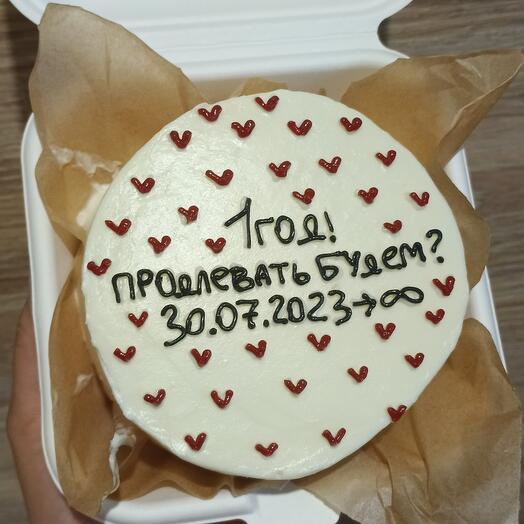 1 год!
ПРОДЛЕВАТЬ БУДЕМ?
30.07.2023→∞